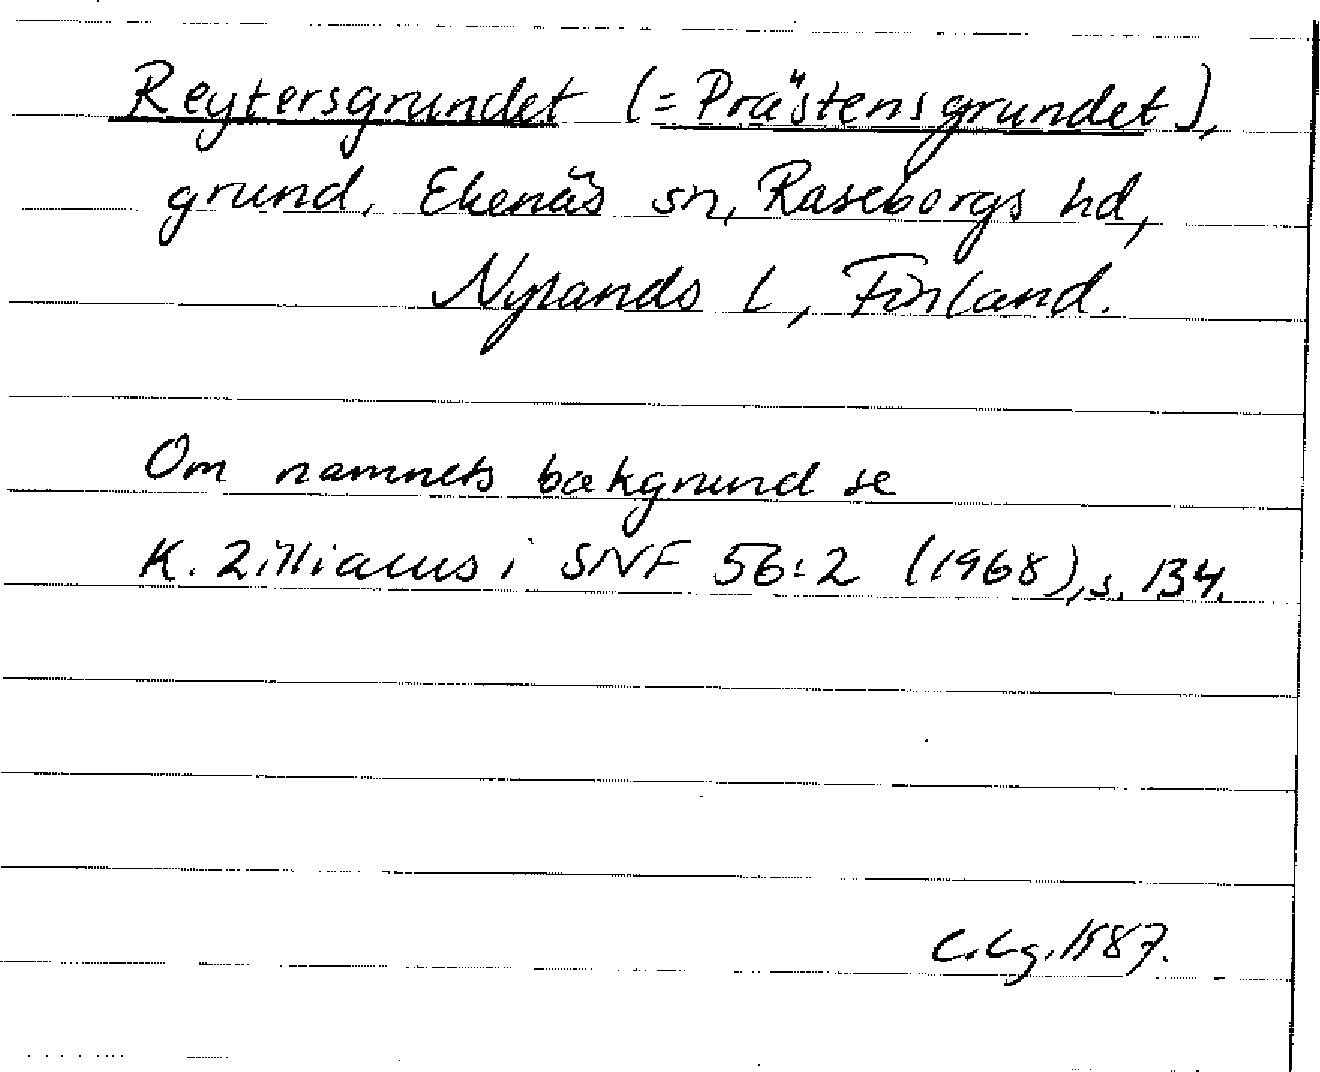 Reytersgrundet (= Prästensgrundet),
grund, Ekenäs sn, Raseborgs hd,
Nylands l, Finland.
Om namnets bakgrund se
K. Zilliacus i SNF 56:2 (1968), s. 134.
C.Lg. 1987.